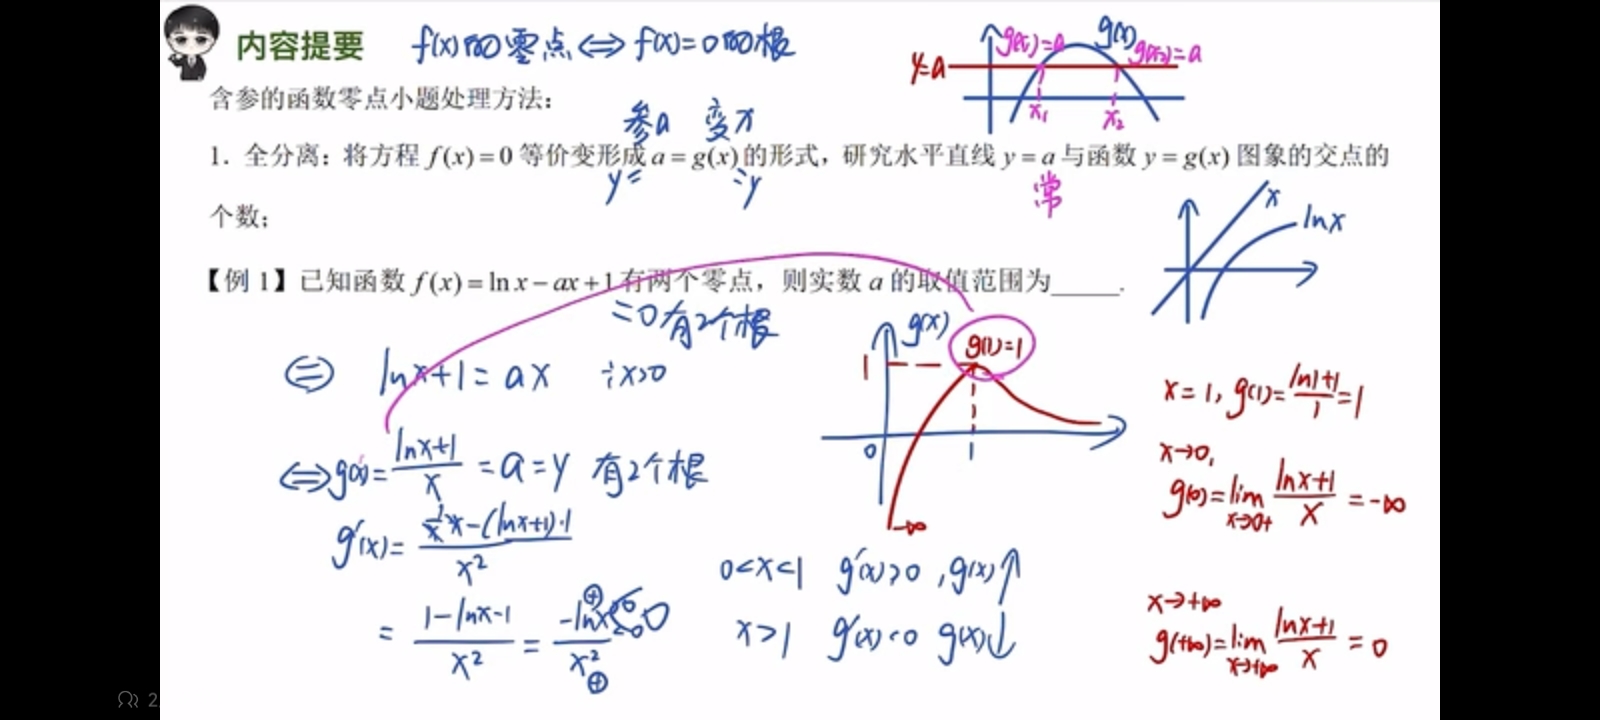 内容提要
f(x)的零点⇔f(x)=0的根
g(x₁)=a
g(x)
g(x₂)=a
y=a
x₁
x₂
含参的函数零点小题处理方法：
参a 变x
1. 全分离：将方程 f(x)=0 等价变形成 a=g(x) 的形式，研究水平直线 y=a 与函数 y=g(x) 图象的交点的
y= =y
常
个数；
x
lnx
【例 1】已知函数 f(x)=ln x−ax+1 有两个零点，则实数 a 的取值范围为_____.
=0有2个根
g(x)
g(1)=1
1
0
1
-∞
⇔ lnx+1=ax ÷x>0
⇔g(x)=(lnx+1)/x=a=y 有2个根
g′(x)=(1/x·x-(lnx+1)·1)/x²
=(1-lnx-1)/x²=-lnx/x²
⊕
⊕
0<x<1 g′(x)>0,g(x)↑
x>1 g′(x)<0 g(x)↓
x=1,g(1)=(ln1+1)/1=1
x→0,
g(0)=lim x→0+ (lnx+1)/x=-∞
x→+∞
g(+∞)=lim x→+∞ (lnx+1)/x=0
2